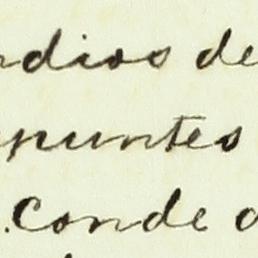 ndios de
puntes
.Conde